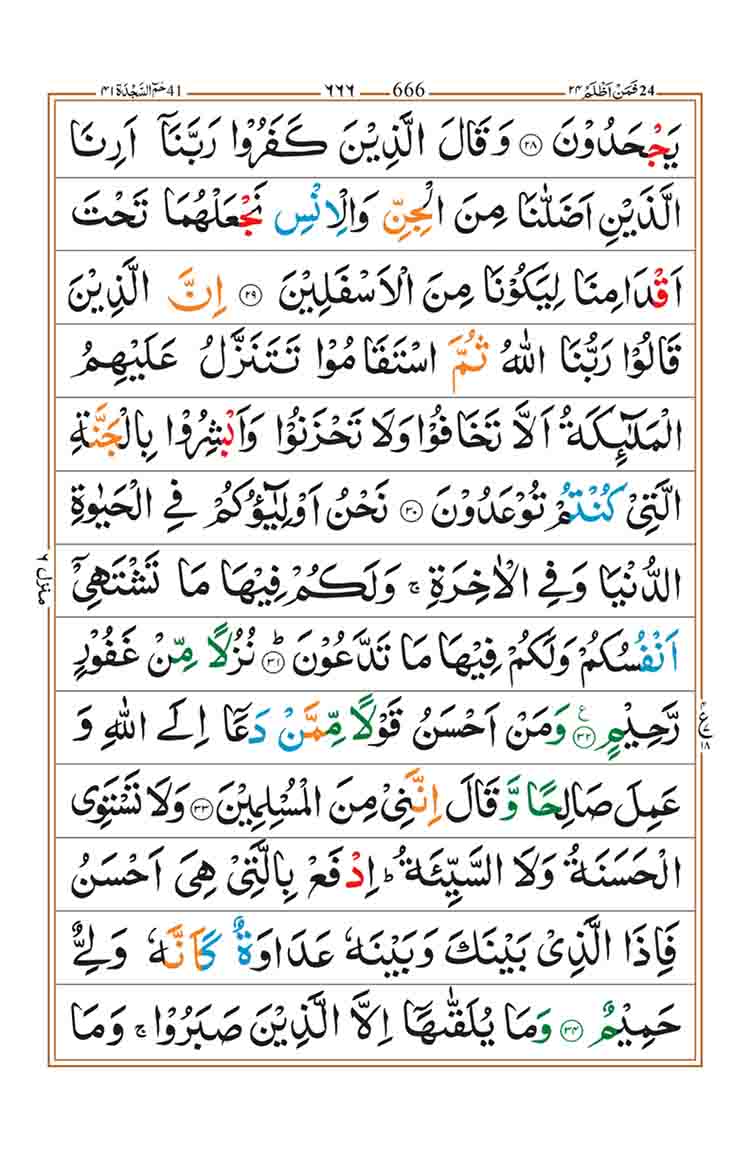 41 حٰمٓ السَّجْدَة ٤١ ٦٦٦ 666 فَمَنْ اَظْلَمُ ٢٤ 24
يَجْحَدُوْنَ ﴿٢٨﴾ وَ قَالَ الَّذِيْنَ كَفَرُوْا رَبَّنَاۤ اَرِنَا
الَّذَيْنِ اَضَلّٰنَا مِنَ الْجِنِّ وَالْاِنْسِ نَجْعَلْهُمَا تَحْتَ
اَقْدَامِنَا لِيَكُوْنَا مِنَ الْاَسْفَلِيْنَ ﴿٢٩﴾ اِنَّ الَّذِيْنَ
قَالُوْا رَبُّنَا اللّٰهُ ثُمَّ اسْتَقَامُوْا تَتَنَزَّلُ عَلَيْهِمُ
الْمَلٰٓئِكَةُ اَلَّا تَخَافُوْا وَلَا تَحْزَنُوْا وَاَبْشِرُوْا بِالْجَنَّةِ
الَّتِيْ كُنْتُمْ تُوْعَدُوْنَ ﴿٣٠﴾ نَحْنُ اَوْلِيٰٓؤُكُمْ فِي الْحَيٰوةِ
الدُّنْيَا وَفِي الْاٰخِرَةِ ۚ وَلَكُمْ فِيْهَا مَا تَشْتَهِيْۤ
اَنْفُسُكُمْ وَلَكُمْ فِيْهَا مَا تَدَّعُوْنَ ﴿٣١﴾ؕ نُزُلًا مِّنْ غَفُوْرٍ
رَّحِيْمٍ ﴿٣٢﴾ع وَمَنْ اَحْسَنُ قَوْلًا مِّمَّنْ دَعَاۤ اِلَى اللّٰهِ وَ
عَمِلَ صَالِحًا وَّ قَالَ اِنَّنِيْ مِنَ الْمُسْلِمِيْنَ ﴿٣٣﴾ وَلَا تَسْتَوِي
الْحَسَنَةُ وَلَا السَّيِّئَةُ ؕ اِدْفَعْ بِالَّتِيْ هِيَ اَحْسَنُ
فَاِذَا الَّذِيْ بَيْنَكَ وَبَيْنَهٗ عَدَاوَةٌ كَاَنَّهٗ وَلِيٌّ
حَمِيْمٌ ﴿٣٤﴾ وَمَا يُلَقّٰىهَاۤ اِلَّا الَّذِيْنَ صَبَرُوْا ۚ وَمَا
منزل ٦
ع ١٨